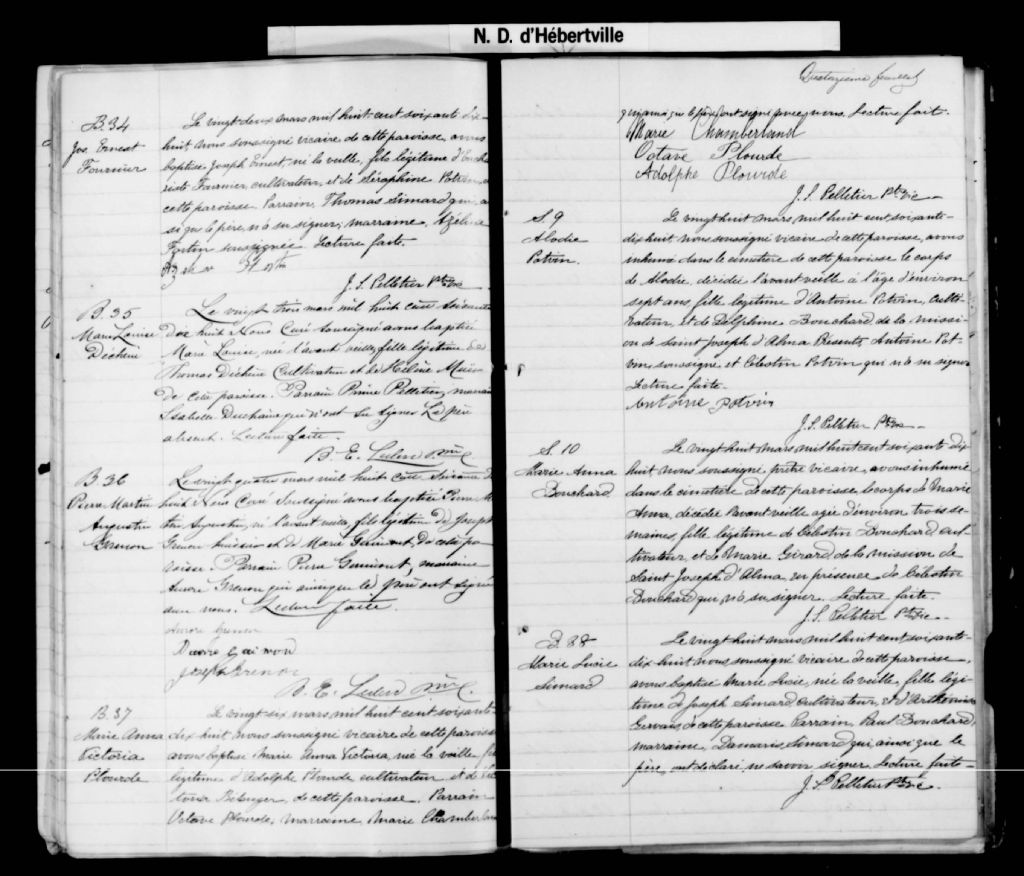 N. D. d'Hébertville
B 34
Jos. Ernest
Fournier
Le vingt-deux mars mil huit-cent soixante dix-
huit nous soussigné vicaire de cette paroisse avons
baptisé Joseph Ernest, né la veille, fils légitime
cultivateur, et de Séraphine Potvin
cette paroisse. Parrain, Thomas Simard qui
si que le père, n'a su signer; marraine, Azéline
Fortin soussignée. Lecture faite.
J. S. Pelletier Ptre Vic
B. 35
Marie Louise
Déchène
Le vingt trois mars mil huit cent soixante
Dix huit Nous Curé soussigné avons baptisé
Marie Louise, née l'avant veille, fille légitime de
Thomas Déchène Cultivateur et de Hélène
De cette paroisse. Parrain Prime Pelletier, marraine
Isabelle Duchaine qui n'ont su signer Le père
absent. Lecture faite.
B. E. Leclerc Ptre
B 36
Pierre Martin
Augustin
Grenon
Le vingt quatre mars mil huit cent soixante
huit Nous Curé Soussigné avons baptisé Pierre
tin Augustin, né l'avant veille, fils légitime de Joseph
Grenon huissier et de Marie Guimont, De cette pa
roisse. Parrain Pierre Guimont, marraine
Aurore Grenon qui ainsi que le père ont signé
avec nous. Lecture faite.
Aurore Grenon
Joseph Grenon
B. E. Leclerc Ptre
B. 37
Marie Anna
Victoria
Plourde
Le vingt-six mars mil huit cent soixante-
dix-huit nous soussigné vicaire de cette paroisse
avons baptisé Marie Anna Victoria, née la veille, fille
légitime d'Adolphe Plourde cultivateur et de Vic
toria Bélanger, de cette paroisse. Parrain
Octave Plourde, Marraine Marie Chamberland
Quatorzième feuillet
qui ainsi que le père ont signé avec nous. Lecture faite.
Marie Chamberland
Octave Plourde
Adolphe Plourde
J. S. Pelletier Ptre Vic
S. 9
Elodie
Potvin.
Le vingt huit mars mil huit cent soixante-
dix huit, nous soussigné vicaire de cette paroisse, avons
inhumé dans le cimetière de cette paroisse le corps
de Elodie, décédée l'avant veille à l'âge d'environ
sept ans, fille légitime d'Antoine Potvin, culti-
vateur, et de Delphine Bouchard de la missi-
on de Saint Joseph d'Alma Présents Antoine Pot-
vin soussigné et Célestin Potvin qui n'a su signer
Lecture faite.
Antoine Potvin
J. S. Pelletier Ptre Vic
S. 10
Marie Anna
Bouchard
Le vingt-huit mars mil huit cent soixante dix
huit, nous soussigné prêtre vicaire, avons inhumé
dans le cimetière de cette paroisse le corps de Marie
Anna, décédée l'avant veille agée d'environ trois se-
maines, fille légitime de Célestin Bouchard cul-
tivateur et de Marie Girard de la mission de
Saint Joseph d'Alma en présence de Célestin
Bouchard qui n'a su signer. Lecture faite.
J. S. Pelletier Ptre Vic.
B. 38
Marie Lucie
Simard
Le vingt-huit mars mil huit cent soixante-
dix-huit nous soussigné vicaire de cette paroisse,
avons baptisé Marie Lucie, née la veille, fille légi-
time de Joseph Simard cultivateur, et d'Arthémise
Gervais de cette paroisse Parrain, Paul Bouchard
marraine, Damaris Simard qui, ainsi que le
père, ont déclaré ne savoir signer Lecture faite-
J. S. Pelletier Ptre Vic.